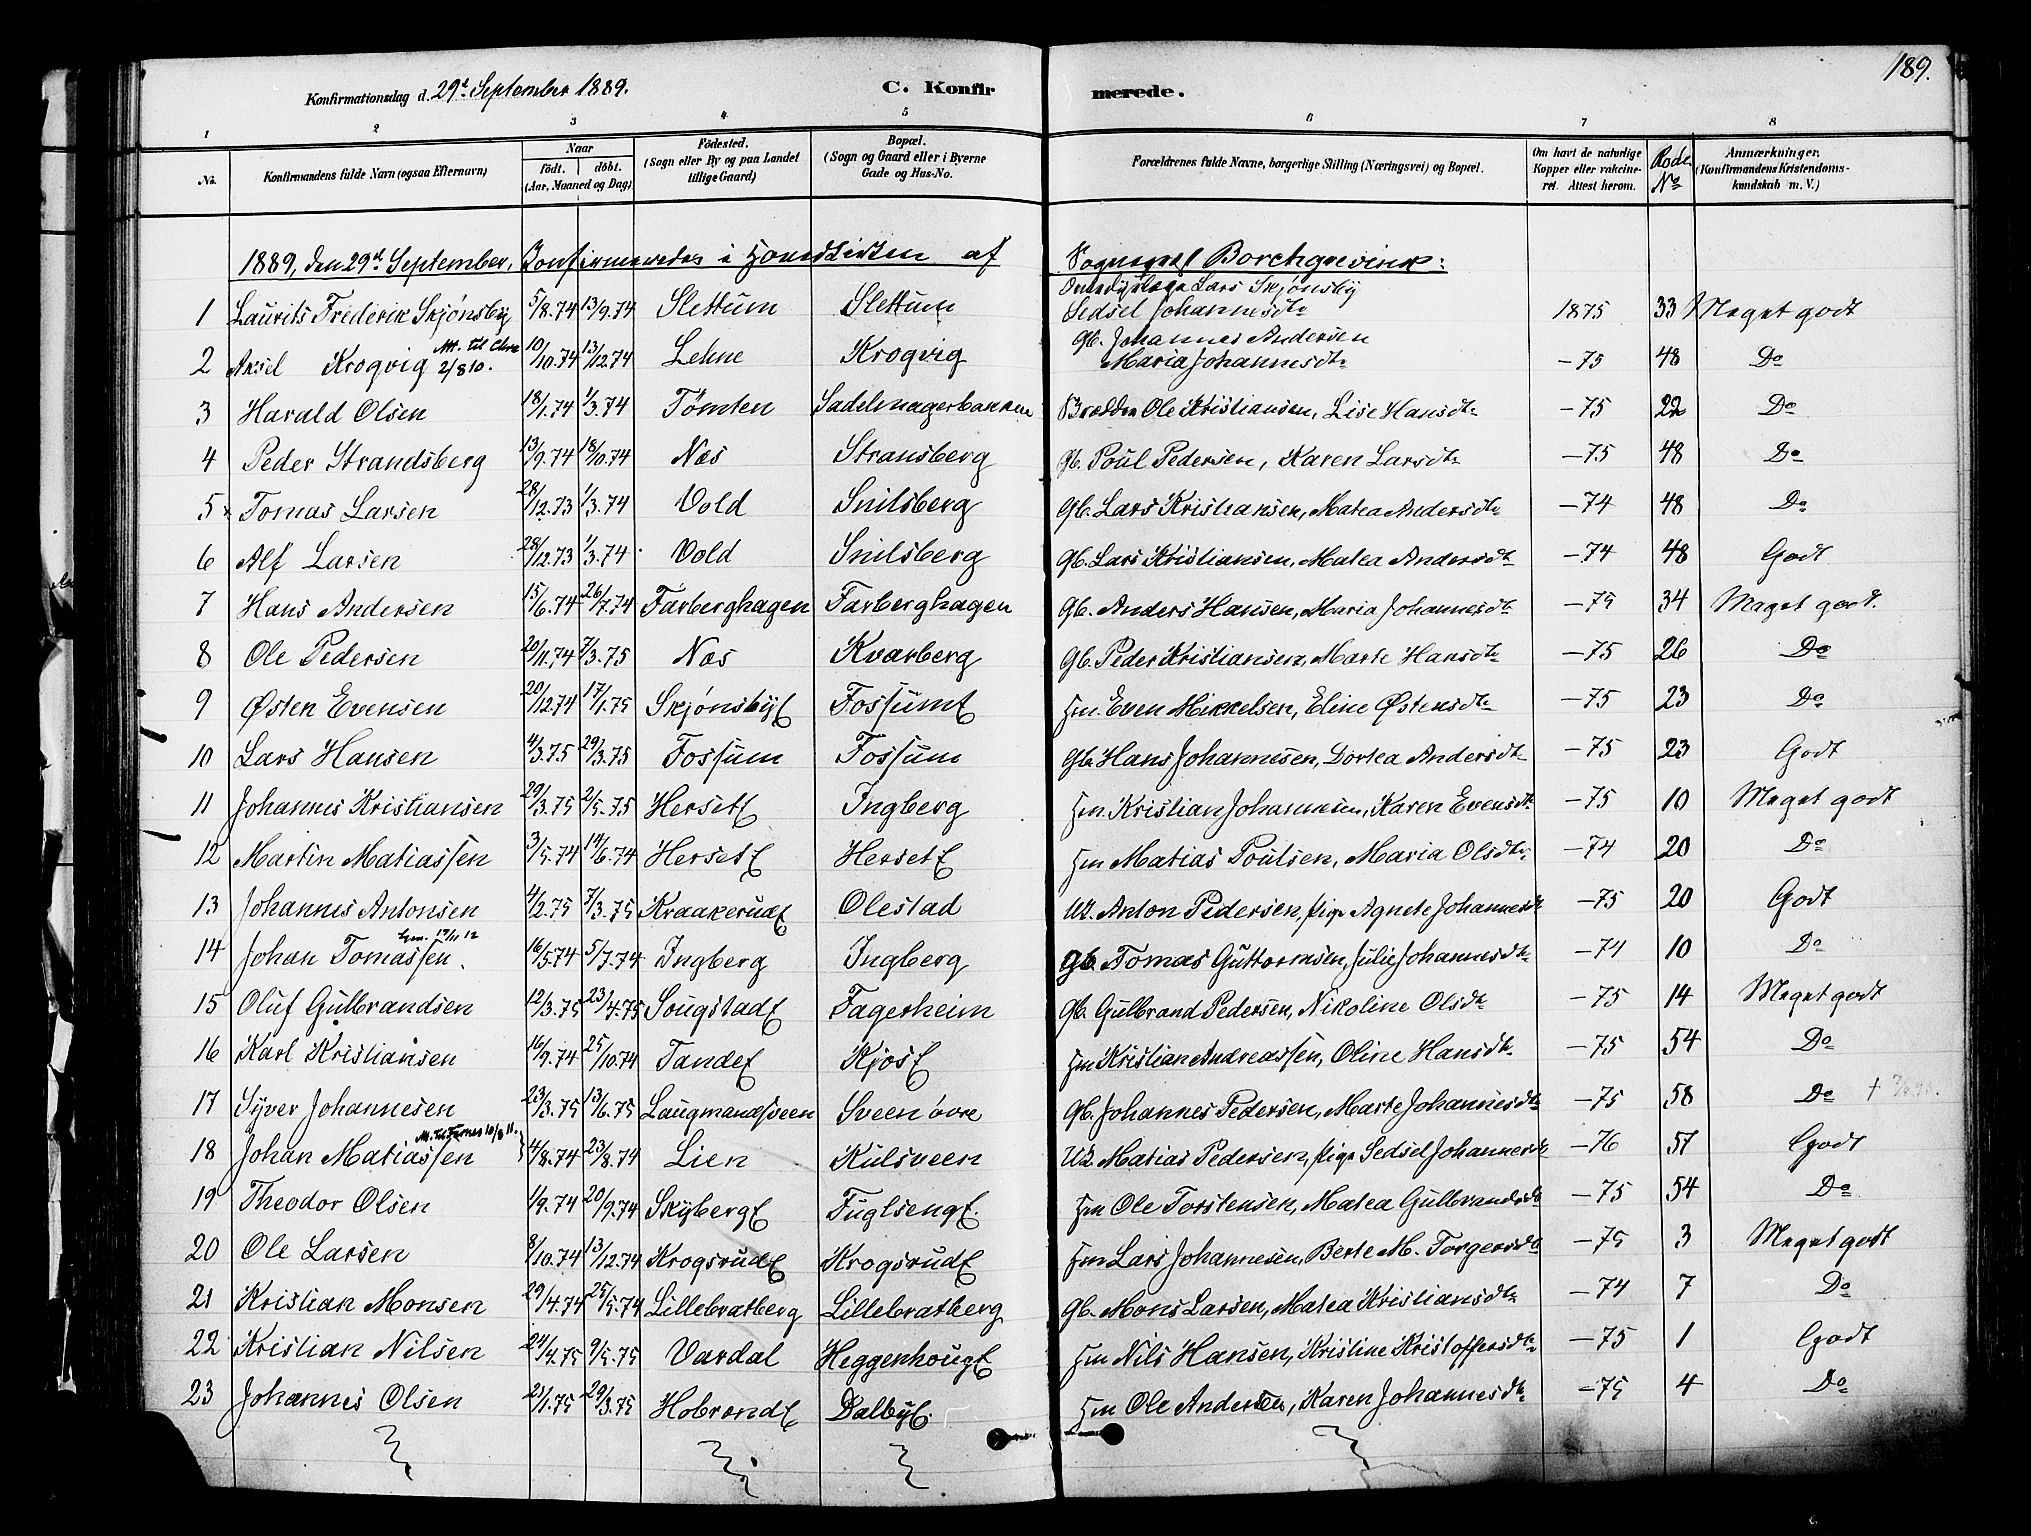 189.
Konfirmationsdag d. 29d. September 1889. C. Konfirmerede.
1 2 3 4 5 6 7 8
No. Konfirmandens fulde Navn (ogsaa Efternavn) Naar födt. döbt. (Aar, Maaned og Dag) Födested. (Sogn eller By og paa Landet tillige Gaard) Bopæl. (Sogn og Gaard eller i Byerne Gade og Hus-No. Forældrenes fulde Navne, borgerlige Stilling (Næringsvei) og Bopæl. Om havt de naturlige Kopper eller vakcineret. Attest herom. Rode No Anmærkninger. (Konfirmandens Kristendomskundskab m. V.)
1889, den 29d. September, Konfirmeredes i Hovedkirken af Sognepræst Borchgrevink:
1 Laurits Frederik Skjønsby 5/8.74 13/9.74 Slettum Slettum Lars Skjønsby Sedsel Johannesdtr 1875 33 Meget godt
2 Aksel Krogvig Att. til Chra 2/8 10. 10/10.74 13/12.74 Lehne Krogvig Gb. Johannes Andersen Maria Johannesdtr -75 48 Do
3 Harald Olsen 18/1.74 1/3.74 Tømten Sadelmagerbakken Ole Kristiansen, Lise Hansdtr -75 22 Do
4 Peder Strandsberg 13/9.74 18/10.74 Næs Stransberg Gb. Poul Pedersen, Karen Larsdtr -75 48 Do
5 Tomas Larsen 28/12.73 1/3.74 Vold Snilsberg Gb. Lars Kristiansen, Matea Andersdtr -74 48 Do
6 Alf Larsen 28/12.73 1/3.74 Vold Snilsberg Gb. Lars Kristiansen, Matea Andersdtr -74 48 Godt
7 Hans Andersen 15/6.74 26/7.74 Farberghagen Farberghagen Gb. Anders Hansen, Maria Johannesdtr -75 34 Meget godt.
8 Ole Pedersen 20/11.74 7/3.75 Næs Kvarberg Gb. Peder Kristiansen, Marte Hansdtr -75 26 Do
9 Østen Evensen 20/12.74 17/1.75 SkjønsbyE FossumE Hm. Even Mikkelsen, Eline Østensdtr -75 23 Do
10 Lars Hansen 4/3.75 29/3.75 Fossum Fossum Gb Hans Johannesen, Dortea Andersdtr -75 23 Godt
11 Johannes Kristiansen 29/3.75 2/5.75 HersetE Ingberg Hm. Kristian Johannesen, Karen Evensdtr -75 10 Meget godt
12 Martin Matiassen 3/5.74 14/6.74 HersetE HersetE Hm Matias Poulsen, Maria Olsdtr -74 20 Do
13 Johannes Antonsen 4/2.75 7/3.75 KraakerudE Olestad Uk. Anton Pedersen, pige Agnete Johannesdtr -75 20 Godt
14 Johan Tomassen 17/11 12 16/5.74 5/7.74 Ingberg Ingberg Gb. Tomas Guttormsen, Julie Johannesdtr -74 10 Do
15 Oluf Gulbrandsen 12/3.75 23/4.75 SougstadE Fagerheim Gb. Gulbrand Pedersen, Nikoline Olsdtr -75 14 Meget godt
16 Karl Kristiansen 16/9.74 25/10.74 TandeE KjosE Hm Kristian Andreassen, Oline Hansdtr -75 54 Do
17 Syver Johannesen 23/3.75 13/6.75 Laugmandsveen Sveen øvre Gb. Johannes Pedersen, Marte Johannesdtr -75 58 Do †
18 Johan Matiassen Att. til Furnes 10/8 11. 4/8.74 23/8.74 Lien Kulsveen Uk Matias Pedersen, pige Sedsel Johannesdtr -76 57 Godt
19 Theodor Olsen 1/9.74 20/9.74 SkybergE FuglsengE. Hm Ole Torstensen, Matea Gulbrandsdtr -75 54 Do
20 Ole Larsen 8/10.74 13/12.74 KrogsrudE KrogsrudE Hm Lars Johannesen, Berte M. Torgersdtr -75 3 Meget godt
21 Kristian Monsen 29/4.74 25/5.74 Lillebratberg Lillebratberg Gb. Mons Larsen, Matea Kristiansdtr -74 7 Do
22 Kristian Nilsen 24/4.75 9/5.75 Vardal HeggenhougE Hm Nils Hansen, Kristine Kristoffersdtr -75 1 Godt
23 Johannes Olsen 21/1.75 29/3.75 HobrandE DalbyE. Hm Ole Andersen, Karen Johannesdtr -75 4 Do